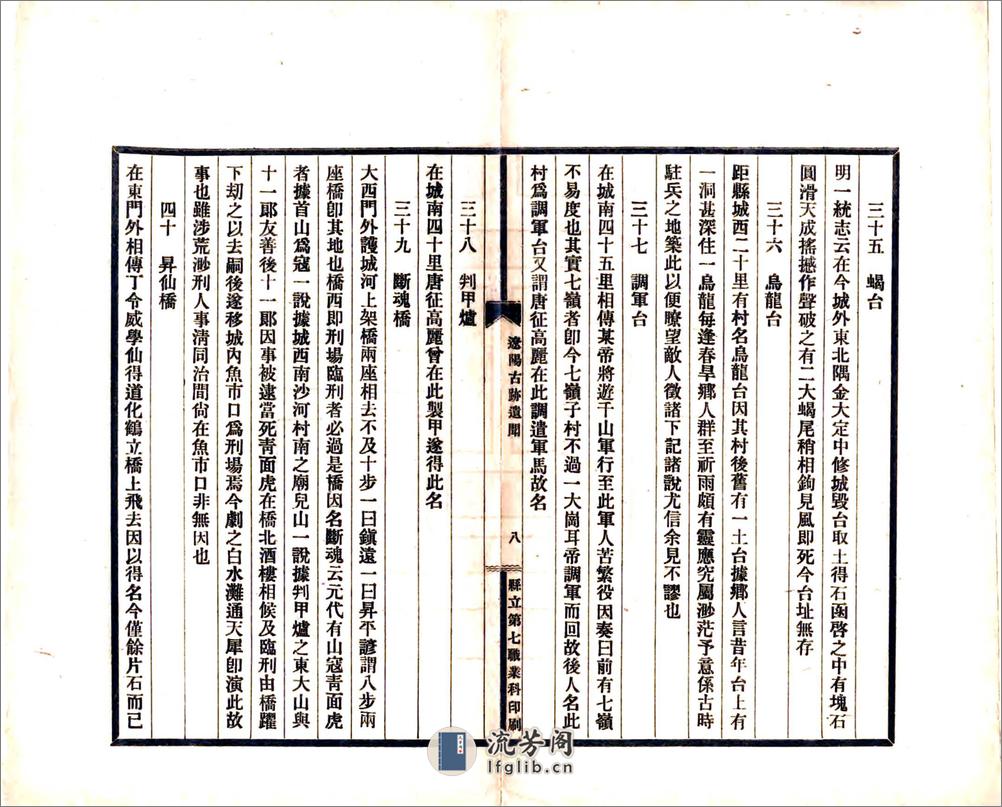 三十五　蝎台
明一統志云在今城外東北隅金大定中修城毀台取土得石函啓之中有塊石
圓滑天成搖撼作聲破之有二大蝎尾稍相鉤見風即死今台址無存
三十六　烏龍台
距縣城西二十里有村名烏龍台因其村後舊有一土台據鄉人言昔年台上有
一洞甚深住一烏龍每逢春旱鄉人群至祈雨頗有靈應究屬渺茫予意係古時
駐兵之地築此以便瞭望敵人徵諸下記諸說尤信余見不謬也
三十七　調軍台
在城南四十五里相傳某帝將遊千山軍行至此軍人苦繁役因奏曰前有七嶺
不易度也其實七嶺者卽今七嶺子村不過一大崗耳帝調軍而回故後人名此
村爲調軍台又謂唐征高麗在此調遣軍馬故名
遼陽古跡遺聞
八
縣立第七職業科印刷
三十八　判甲爐
在城南四十里唐征高麗曾在此製甲遂得此名
三十九　斷魂橋
大西門外護城河上架橋兩座相去不及十步一曰鎭遠一曰昇平諺謂八步兩
座橋卽其地也橋西即刑場臨刑者必過是橋因名斷魂云元代有山寇靑面虎
者據首山爲寇一說據城西南沙河村南之廟兒山一說據判甲爐之東大山與
十一郞友善後十一郞因事被逮當死靑面虎在橋北酒樓相候及臨刑由橋躍
下刧之以去嗣後遂移城內魚市口爲刑場焉今劇之白水灘通天犀卽演此故
事也雖涉荒渺刑人事淸同治間尙在魚市口非無因也
四十　昇仙橋
在東門外相傳丁令威學仙得道化鶴立橋上飛去因以得名今僅餘片石而已
流芳阁
lfglib.cn